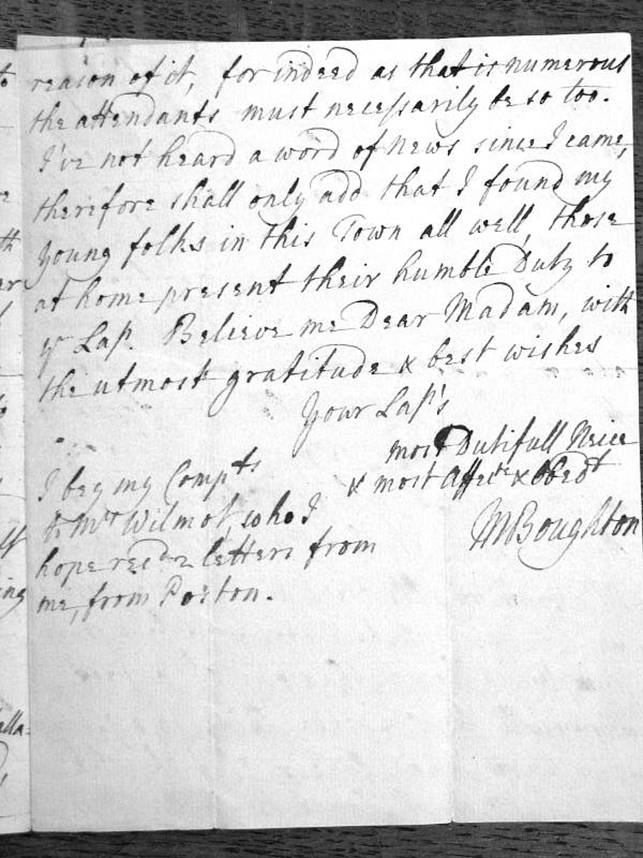 reason of it, for indeed as that is numerous
the attendants must necessarily be so too.
I've not heard a word of News since I came,
therefore shall only add that I found my
young folks in this Town all well, those
at home present their humble Duty to
yr Lap. Believe me Dear Madam, with
the utmost gratitude & best wishes
Your Lap's
most Dutifull Neice
& most Affecte & Obedt
MBoughton
I beg my Compts
to Mr Wilmot, who I
hope recd 2 letters from
me, from Poston.